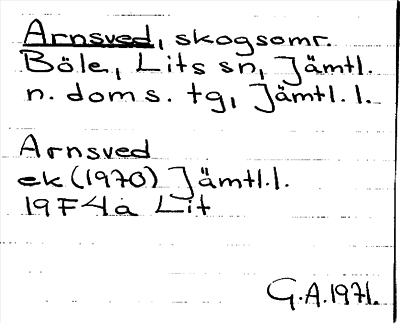 Arnsved, skogsomr.
Böle, Lits sn, Jämtl.
n. doms. tg, Jämtl. l.
Arnsved
ek (1970) Jämtl.l.
19F4a Lit
G.A.1971.